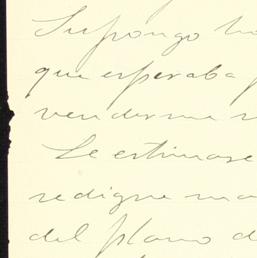 Supongo
que esperaba
venderme
Le estimare
redigne
del plano d